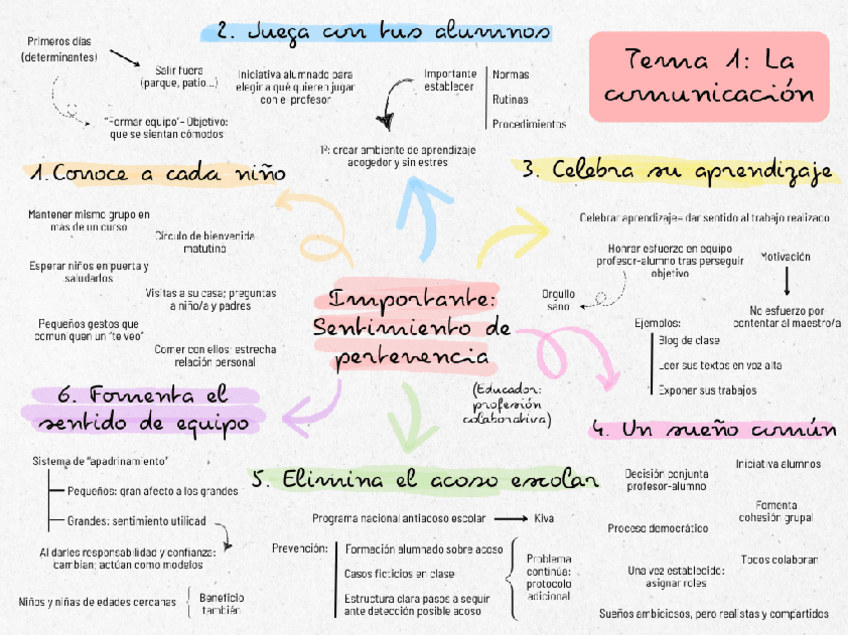 2. Juega con tus alumnos
Tema 1: La
comunicación
Primeros días
(determinantes)
Salir fuera
(parque, patio...)
"Formar equipo"- Objetivo:
que se sientan cómodos
Iniciativa alumnado para
elegir a qué quieren jugar
con el profesor
Importante
establecer
Normas
Rutinas
Procedimientos
1º: crear ambiente de aprendizaje
acogedor y sin estres
1.Conoce a cada niño
Mantener mismo grupo en
más de un curso
Círculo de bienvenida
matutino
Esperar niños en puerta y
saludarlos
Visitas a su casa; preguntas
a niño/a y padres
Pequeños gestos que
comuniquen un "te veo"
Comer con ellos: estrecha
relación personal
3. Celebra su aprendizaje
Celebrar aprendizaje= dar sentido al trabajo realizado
Honrar esfuerzo en equipo
profesor-alumno tras perseguir
objetivo
Motivación
Orgullo
sano
No esfuerzo por
contentar al maestro/a
Ejemplos:
Blog de clase
Leer sus textos en voz alta
Exponer sus trabajos
Importante:
Sentimiento de
pertenencia
(Educador:
profesión
colaborativa)
6. Fomenta el
sentido de equipo
Sistema de "apadrinamiento"
Pequeños: gran afecto a los grandes
Grandes: sentimiento utilicad
Al darles responsabilidad y confianza:
cambian; actúan como modelos
Niños y niñas de edades cercanas
Beneficio
también
5. Elimina el acoso escolar
Programa nacional antiacoso escolar
Kiva
Prevención:
Formación alumnado sobre acoso
Casos ficticios en clase
Estructura clara pasos a seguir
ante detección posible acoso
Problema
continúa:
protocolo
adicional
4. Un sueño común
Decisión conjunta
profesor-alumno
Iniciativa alumnos
Fomenta
cohesión grupal
Proceso democrático
Todos colaboran
Una vez establecido:
asignar roles
Sueños ambiciosos, pero realistas y compartidos